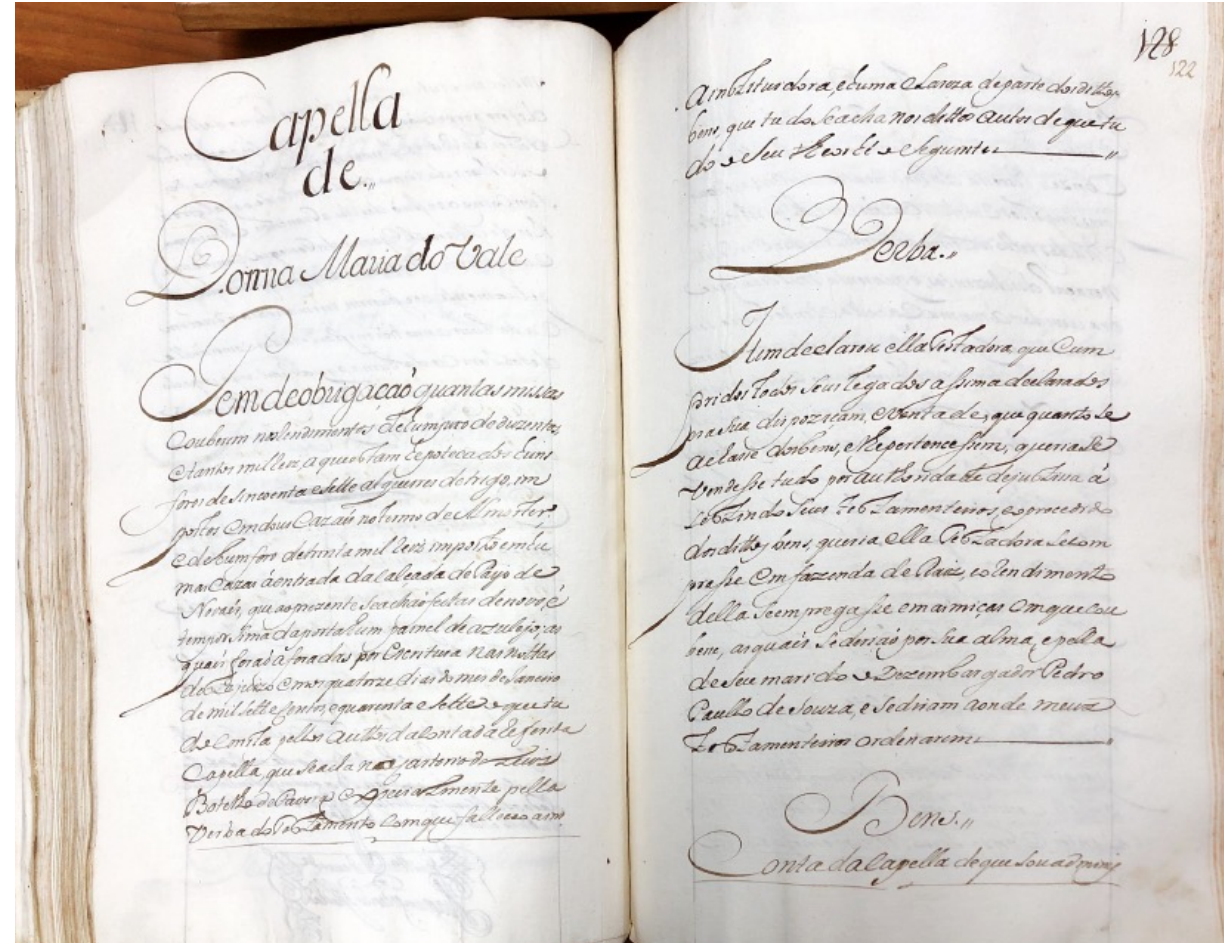 Capella
de.,,
Donna Maria do Vale
Tem de obrigação quantas missas
Couberem no rendimento de hum juro de duzentos
e tantos mil reis, a que estam hepotecados huns
foros de sincoenta e sette alqueires de trigo, im
postos em dous Cazais no termo de Almoster,
e de hum foro de trinta mil reis imposto em hu
mas Cazas á entrada da Calcada do Payo de
Novais, que ao prezente se achão feitas de novo, e
tem por sima da porta hum painel de azulejo, as
quais forão aforadas por Escritura nas nottas
do em os quatorze dias do mes de Janeiro
de mil sette centos, e quarenta e sette e que tu
do Consta pellos Auttos da Conta da referida
Capella, que se acha no cartorio de
Botelho de e espicialmente pella
Verba do Testamento com que falleceo a ins
128
122
a instituidora, e huma Clareza de parte dos dittos
bens, que tudo se acha nos dittos autos de que tu
do o seu theor hé o seguinte
Verba.,,
Item declarou ella Testadora, que Cum
pridos todos seus legados assima declarados
pra sua dispoziçam, e Vontade, que quanto se
achase dos bens, e lhe pertencessem, queria se
Vendesse tudo por authoridade de justissa á
seus Testamenteiros, e o procedido
dos dittos bens, queria ella Testadora se com
prasse em fazenda de Raiz, e o Rendimento
della se empregasse em as miças em que cou
bene, as quais se dirião por sua alma, e pella
de seu marido o Dezembargador Pedro
Paullo de Souza, e se diriam aonde meus
Testamenteiros ordenarem
Bens.,,
Conta da Capella de que sou admini